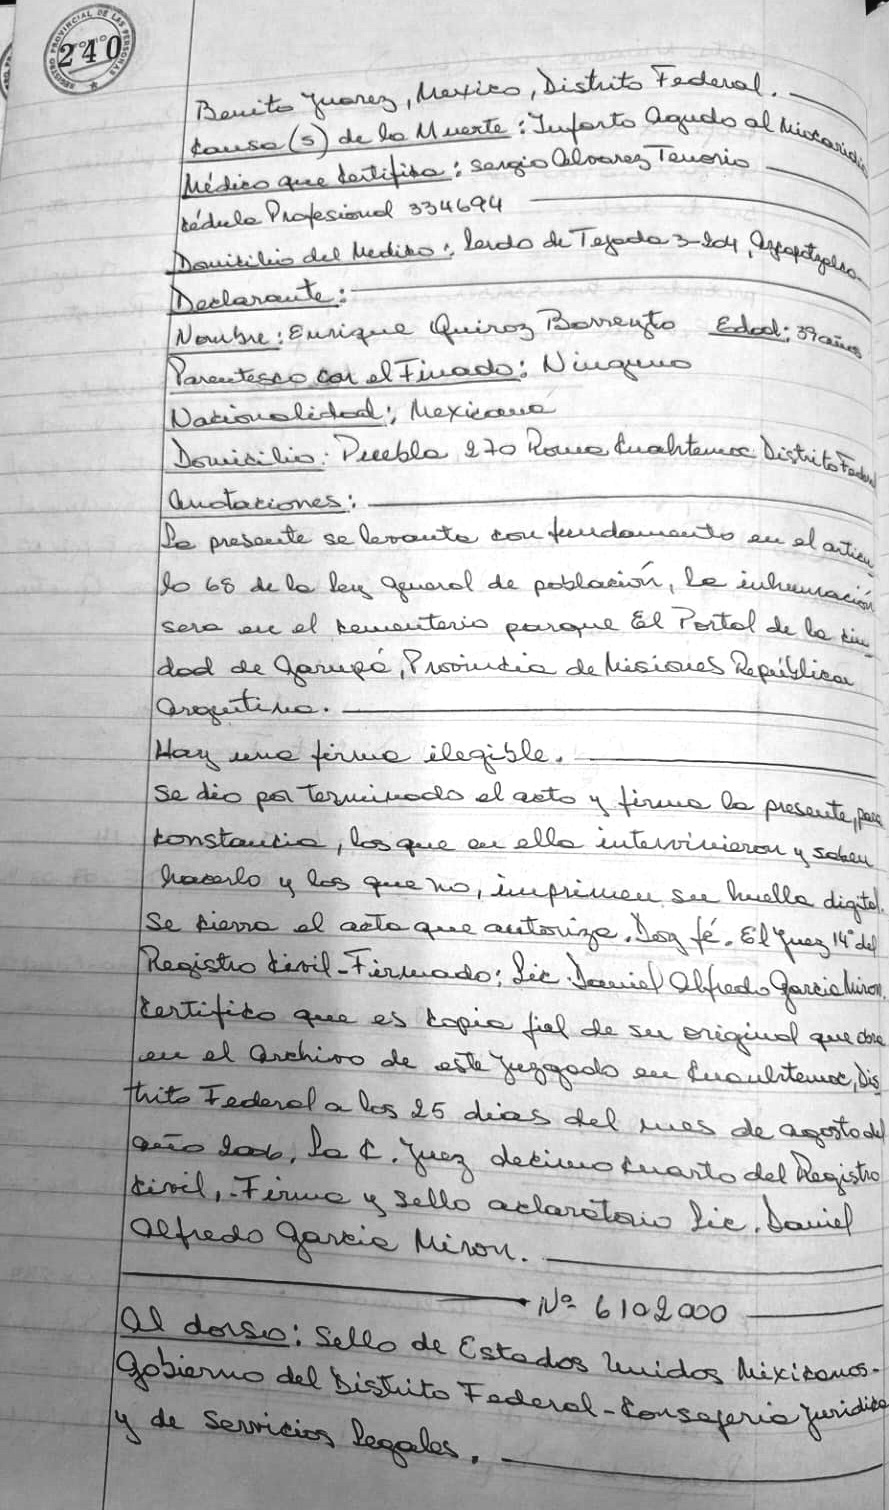 REGISTRO PROVINCIAL DE LAS PERSONAS
240
Benito Juarez, Mexico, Distrito Federal.
Causa(s) de la Muerte: Infarto Agudo al Miocardio
Médico que Certifica: Sergio Alvarez Tenorio
Cédula Profesional 334694
Domicilio del Medico: Lerdo de Tejada 3-204, Azcapotzalco
Declarante:
Nombre: Enrique Quiroz Borrento Edad: 39 años
Parentesco con el Finado: Ninguno
Nacionalidad: Mexicana
Domicilio: Puebla 270 Roma Cuahtemoc Distrito Federal
Anotaciones:
La presente se levanta con fundamento en el articu
lo 68 de la ley general de población, la inhumación
sera en el cementerio parque El Portal de la ciu
dad de Garupá, Provincia de Misiones República
Argentina.
Hay una firma ilegible.
Se dio por terminado el acto y firma la presente, para
constancia, los que en ella intervinieron y saben
hacerlo y los que no, imprimen su huella digital.
Se cierra el acta que autoriza. Doy fé. El Juez 14° del
Registro Civil - Firmado: Lic. Daniel Alfredo Garcia Miron.
Certifico que es copia fiel de su original que obra
en el Archivo de este Juzgado en Cuauhtemoc, Dis
trito Federal a los 25 dias del mes de agosto del
año 2006, La C. Juez decimo cuarto del Registro
Civil, - Firma y sello aclaratorio Lic. Daniel
Alfredo Garcia Miron.
Nº 6102000
Al dorso: Sello de Estados Unidos Mexicanos -
Gobierno del Distrito Federal - Consejeria Juridica
y de Servicios Legales.